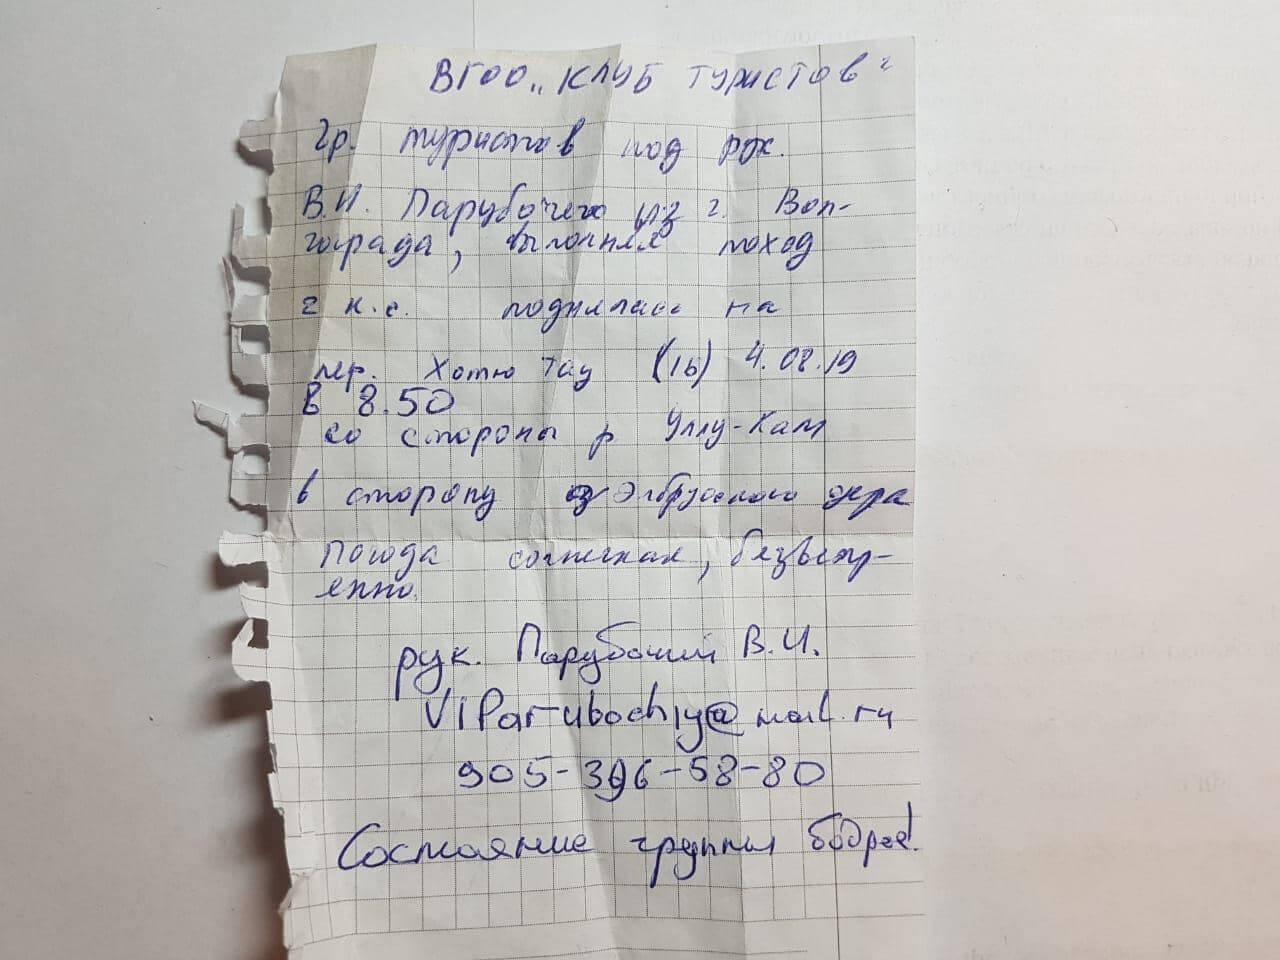 ВГОО „КЛУБ ТУРИСТОВ"
Гр. туристов под рук.
В.И. Парубочего из г. Вол-
гограда, выполняя поход
2 к.с. поднялась на
пер. Хотю Тау (1Б) 4.08.19
в 8.50
со стороны р Уллу-Кам
в сторону Эльбрусского
Погода солнечная, безветр-
енно.
рук. Парубочий В.И.
VIParubochiy@mail.ru
905-396-58-80
Состояние группы бодрое!